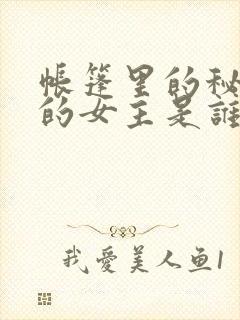 帳篷里的秘
的女主是誰
我愛美人鱼1